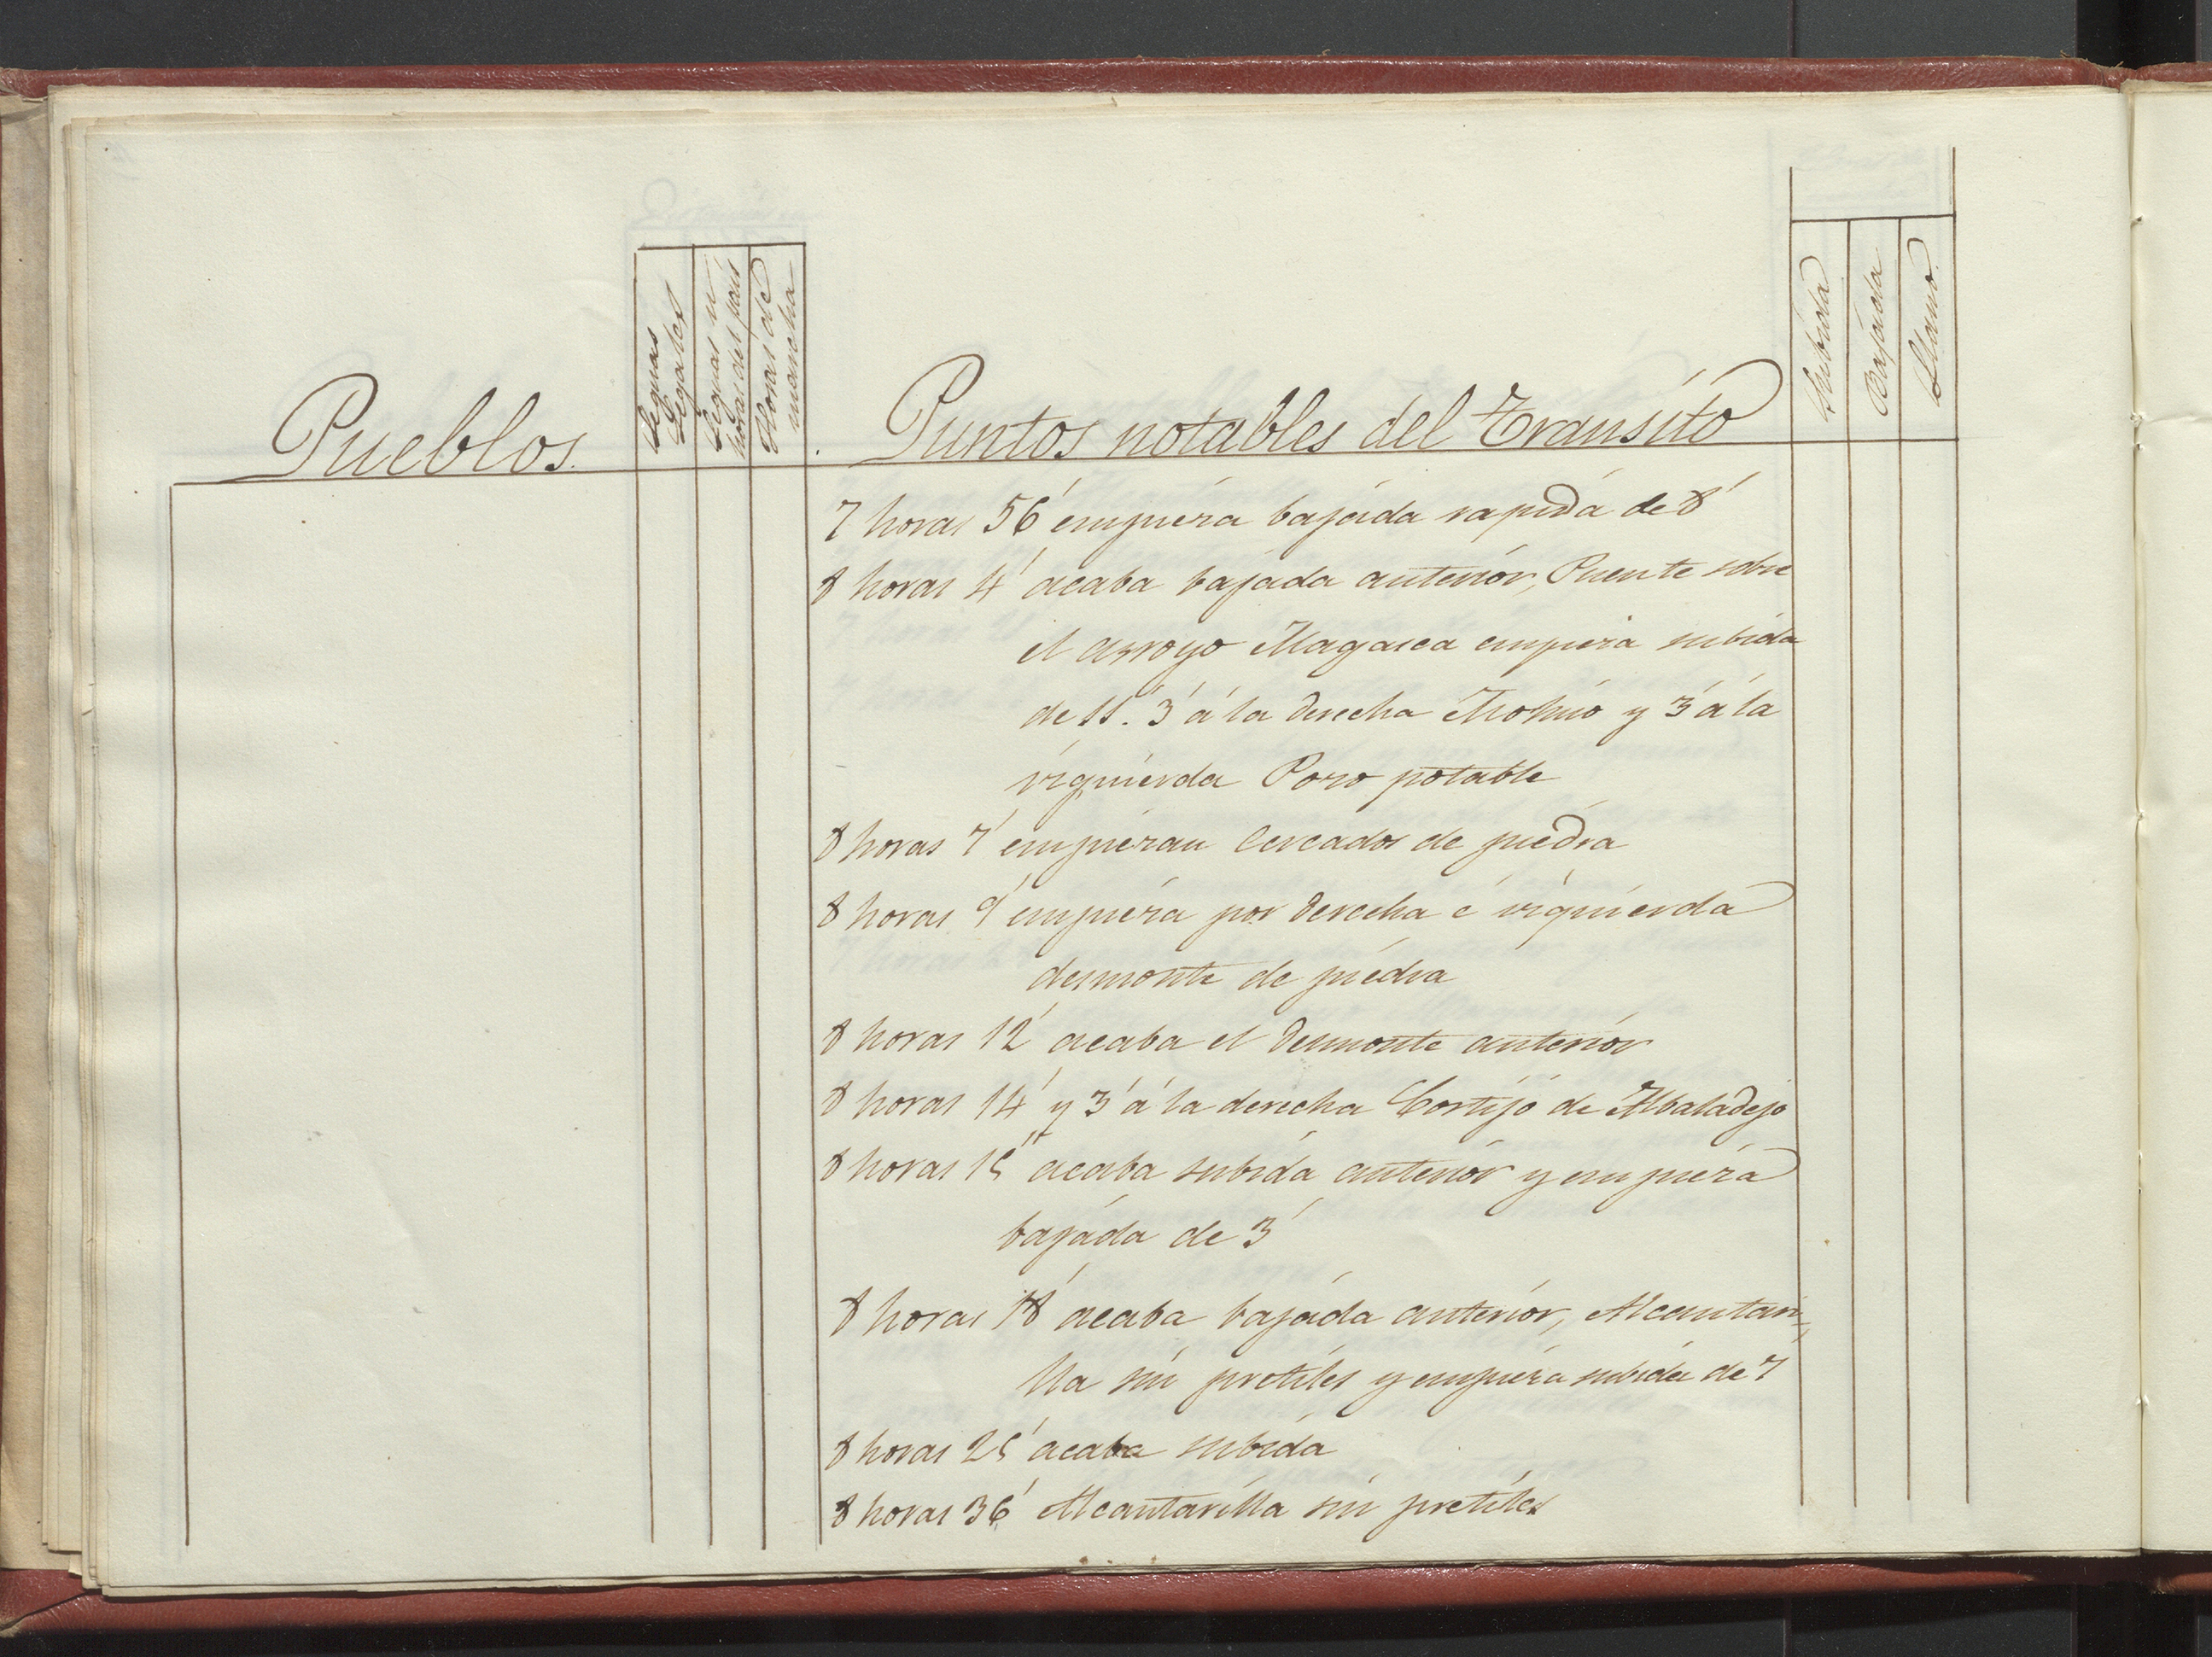 Pueblos.
Leguas
Legales
Leguas u
horas del pais
Horas de
marcha
Puntos notables del Transito
Subida
Bajada
Llano.
7 horas 56' empieza bajada rapida de 8'
8 horas 4' acaba bajada anterior, Puente sobre
el arroyo Magasca empieza subida
de 11'. 3' á la derecha Molino y 3' á la
izquierda Pozo potable
8 horas 7' empiezan cercados de piedra
8 horas 9' empieza por derecha é izquierda
desmonte de piedra
8 horas 12' acaba el desmonte anterior
8 horas 14' y 3' á la derecha Cortijo de Albaladejo
8 horas 15' acaba subida anterior y empieza
bajada de 3'
8 horas 18' acaba bajada anterior, Alcantari-
lla sin pretiles y empieza subida de 7
8 horas 25' acaba subida
8 horas 36' Alcantarilla sin pretiles